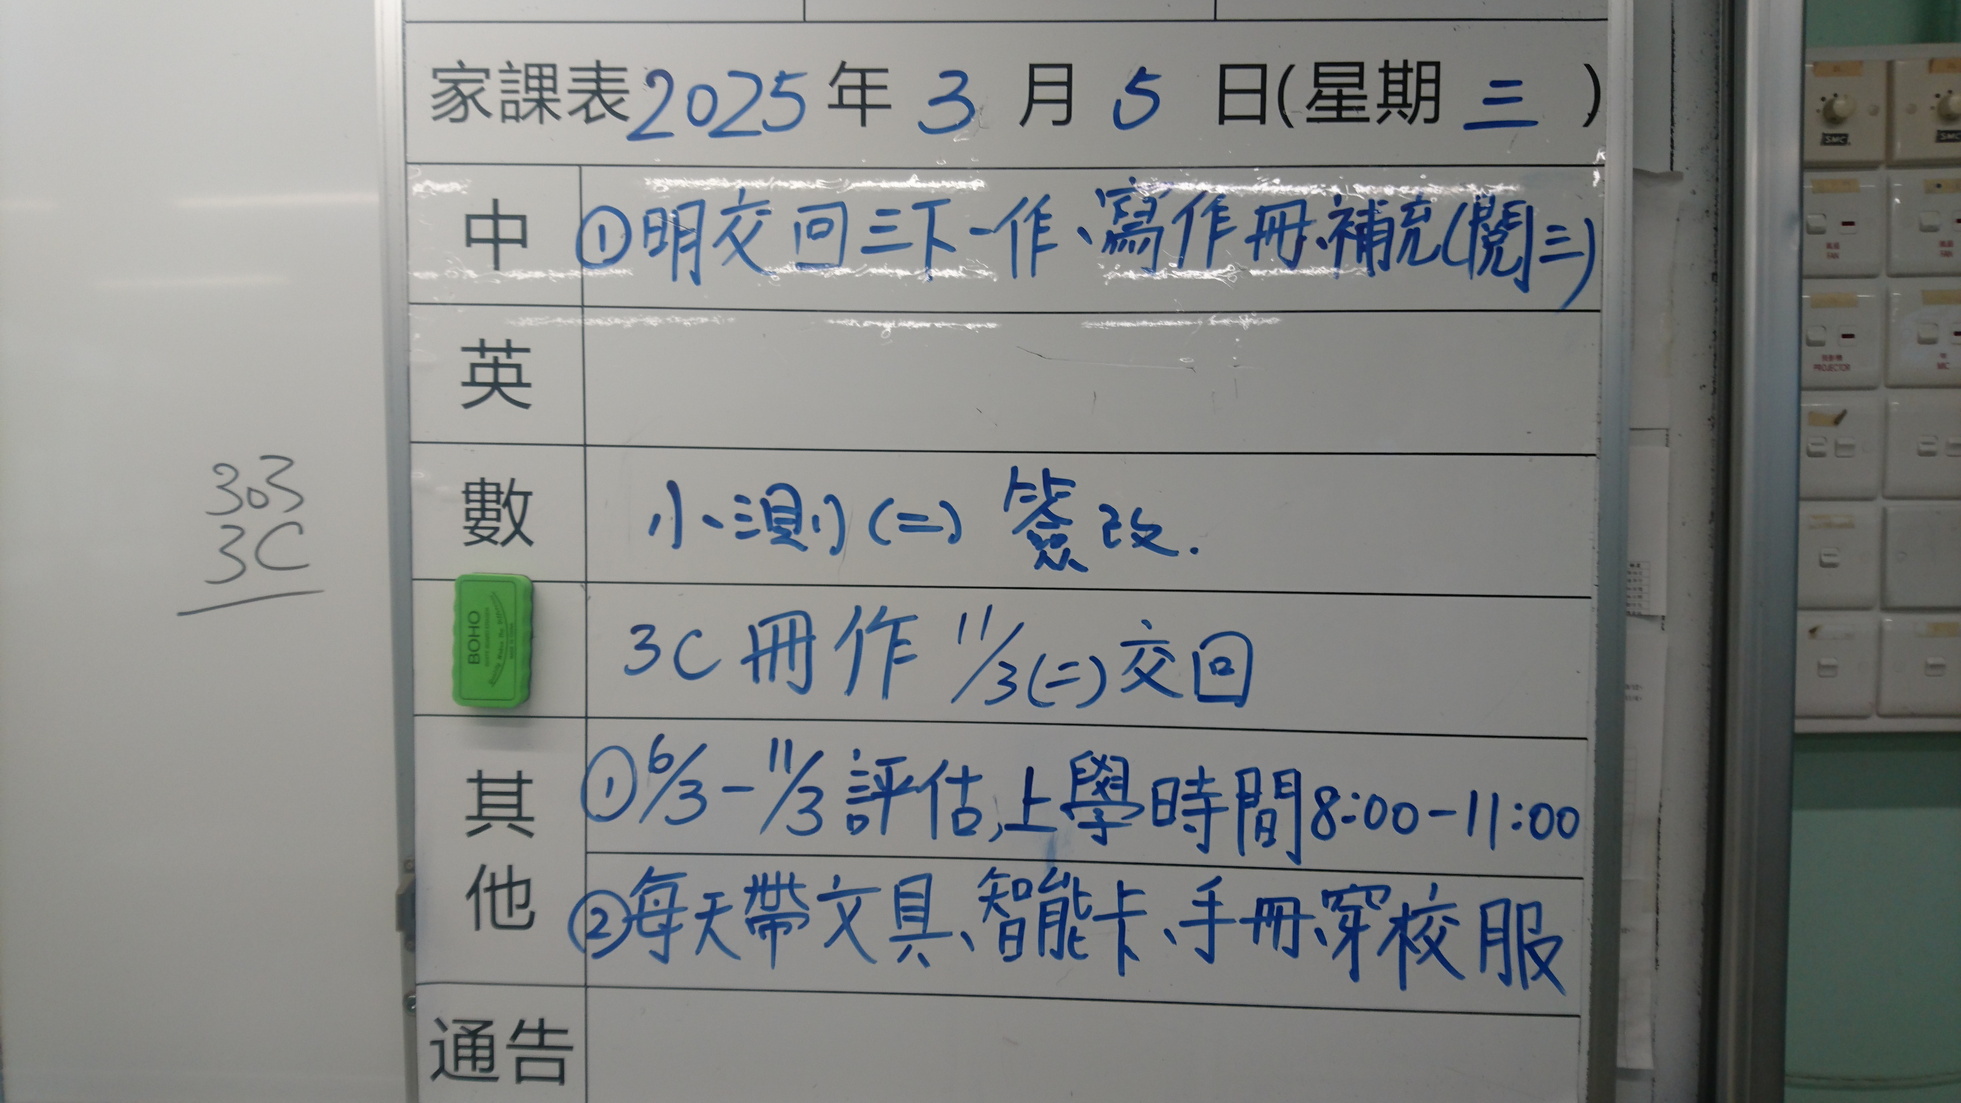 家課表2025年3月5日(星期三)
中 ①明交回三下一作、寫作冊、補充(閱三)
英
數 小測(二)簽改.
3C冊作 11/3(二)交回
其他 ①6/3-11/3評估,上學時間8:00-11:00
②每天帶文具、智能卡、手冊、穿校服
通告
303
3C
BOHO
SMC
SMC
FAN
FAN
PROJECTOR
MIC